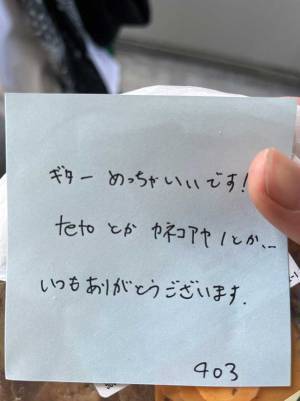 ギター めっちゃいいです!
tetoとか カネコアヤノとか、...
いつもありがとうございます.
403